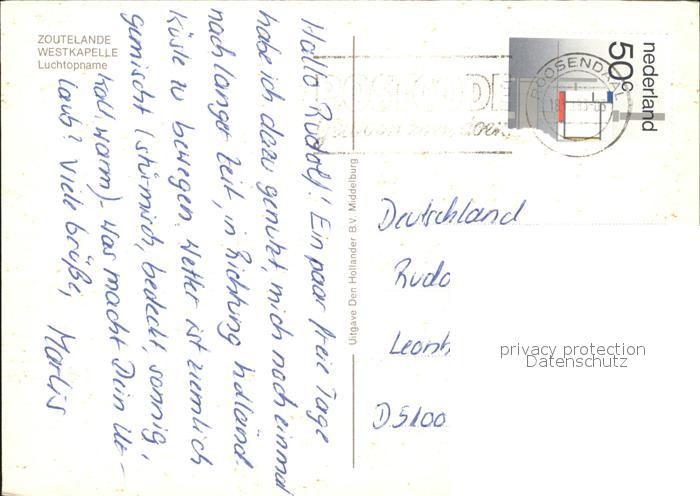 ZOUTELANDE
WESTKAPELLE
Luchtopname
Hallo Rudolf! Ein paar freie Tage
habe ich dazu genutzt, mich noch einmal
nach langer Zeit, in Richtung holländ.
Küste zu bewegen. Wetter ist ziemlich
gemischt (stürmisch, bedeckt, sonnig,
kalt, warm). Was macht Dein Ur-
laub? Viele Grüße, Marlis
Uitgave Den Hollander B.V. Middelburg
nederland
50c
ROOSENDAAL
Deutschland
Rudo
Leonh
D 5100
privacy protection
Datenschutz